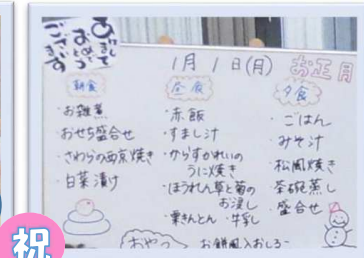 あけまして
おめでとう
ございます
1月1日(月) お正月
朝食
・お雑煮
・おせち盛合せ
・さわらの西京焼き
・白菜漬け
昼食
・赤飯
・すまし汁
・からすかれいの
うに焼き
・ほうれん草と菊の
お浸し
・栗きんとん ・牛乳
夕食
・ごはん
・みそ汁
・松風焼き
・茶碗蒸し
・盛合せ
おやつ
お餅風入おしるこ
祝